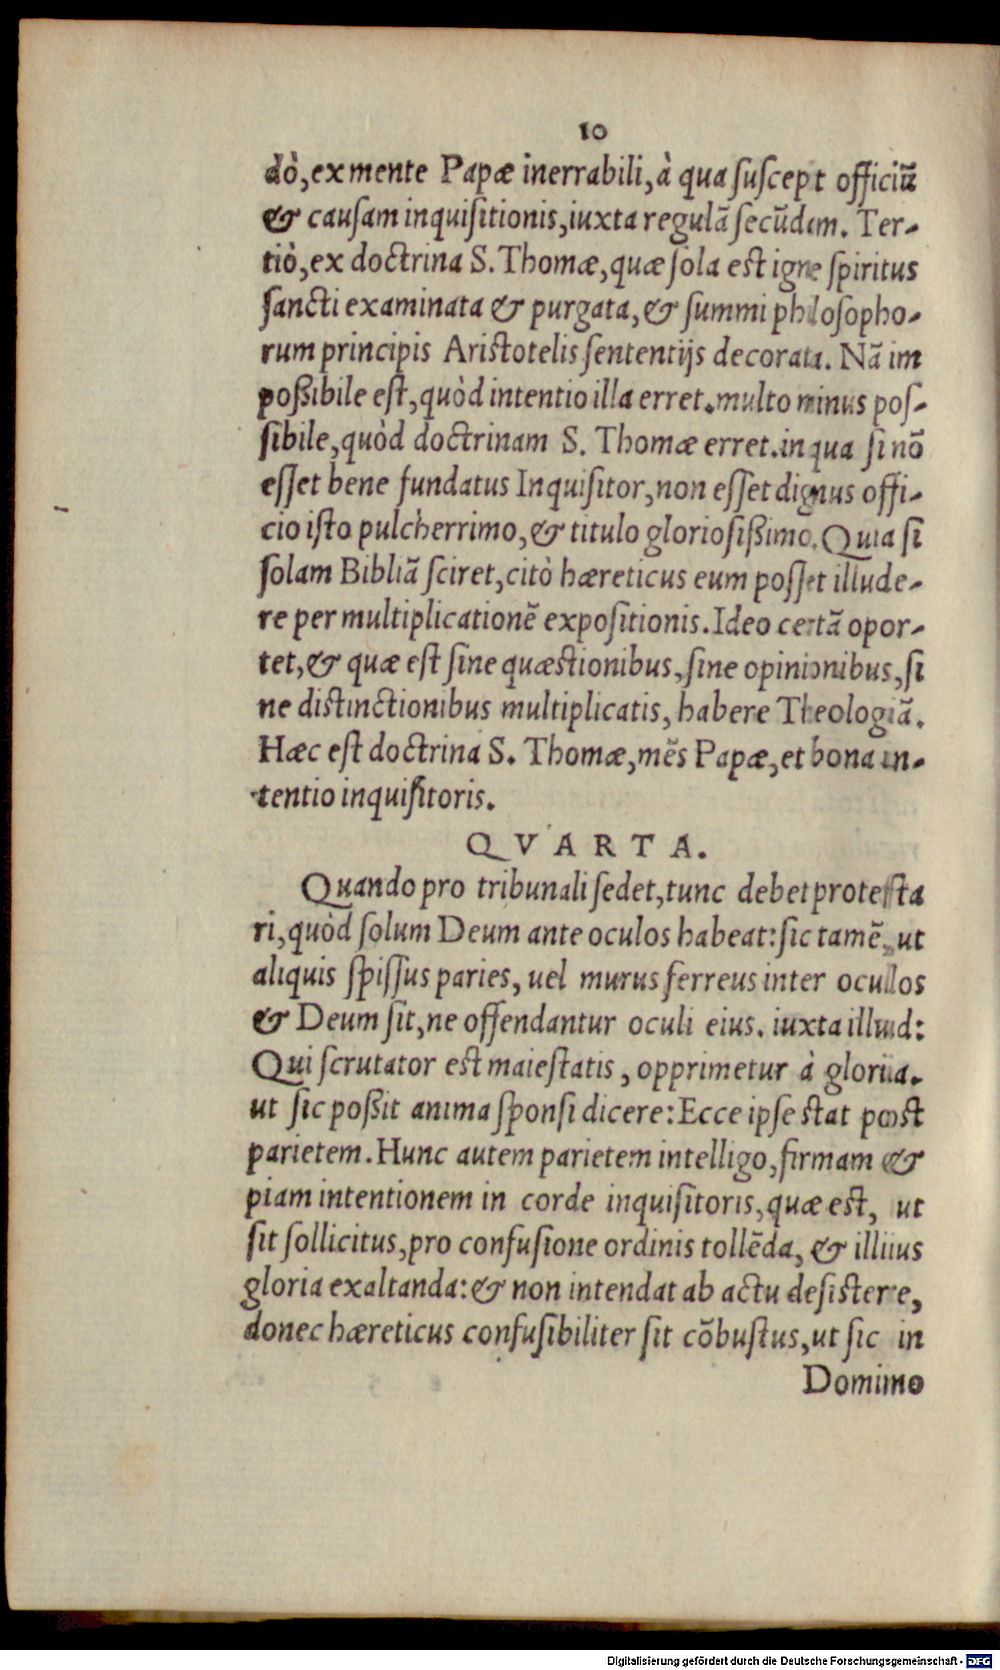 10
dò, ex mente Papæ inerrabili, à qua ſuſcepit officiũ
& cauſam inquiſitionis, iuxta regulã ſecũdam. Ter-
tiò, ex doctrina S. Thomæ, quæ ſola est igne ſpiritus
ſancti examinata & purgata, & ſummi philoſopho-
rum principis Ariſtotelis ſententijs decorata. Nã im
poßibile eſt, quòd intentio illa erret. multo minus poſ-
ſibile, quòd doctrinam S. Thomæ erret. in qua ſi nõ
eſſet bene fundatus Inquiſitor, non eſſet dignus offi-
cio iſto pulcherrimo, & titulo glorioſißimo. Quia ſi
ſolam Bibliã ſciret, citò hæreticus eum poſſet illude-
re per multiplicationẽ expoſitionis. Ideo certã opor-
tet, & quæ eſt ſine quæſtionibus, ſine opinionibus, ſi
ne diſtinctionibus multiplicatis, habere Theologiã.
Hæc eſt doctrina S. Thomæ, mẽs Papæ, et bona in-
tentio inquiſitoris.
QVARTA.
Quando pro tribunali ſedet, tunc debet proteſta
ri, quòd ſolum Deum ante oculos habeat: ſic tamẽ, ut
aliquis ſpiſſus paries, uel murus ferreus inter ocullos
& Deum ſit, ne offendantur oculi eius. iuxta illud:
Qui ſcrutator eſt maieſtatis, opprimetur à gloria.
ut ſic poßit anima ſponſi dicere: Ecce ipſe ſtat poſt
parietem. Hunc autem parietem intelligo, firmam &
piam intentionem in corde inquiſitoris, quæ eſt, ut
ſit ſollicitus, pro confuſione ordinis tollẽda, & illius
gloria exaltanda: & non intendat ab actu deſiſtere,
donec hæreticus confuſibiliter ſit cõbuſtus, ut ſic in
Domino
Digitalisierung gefördert durch die Deutsche Forschungsgemeinschaft - DFG